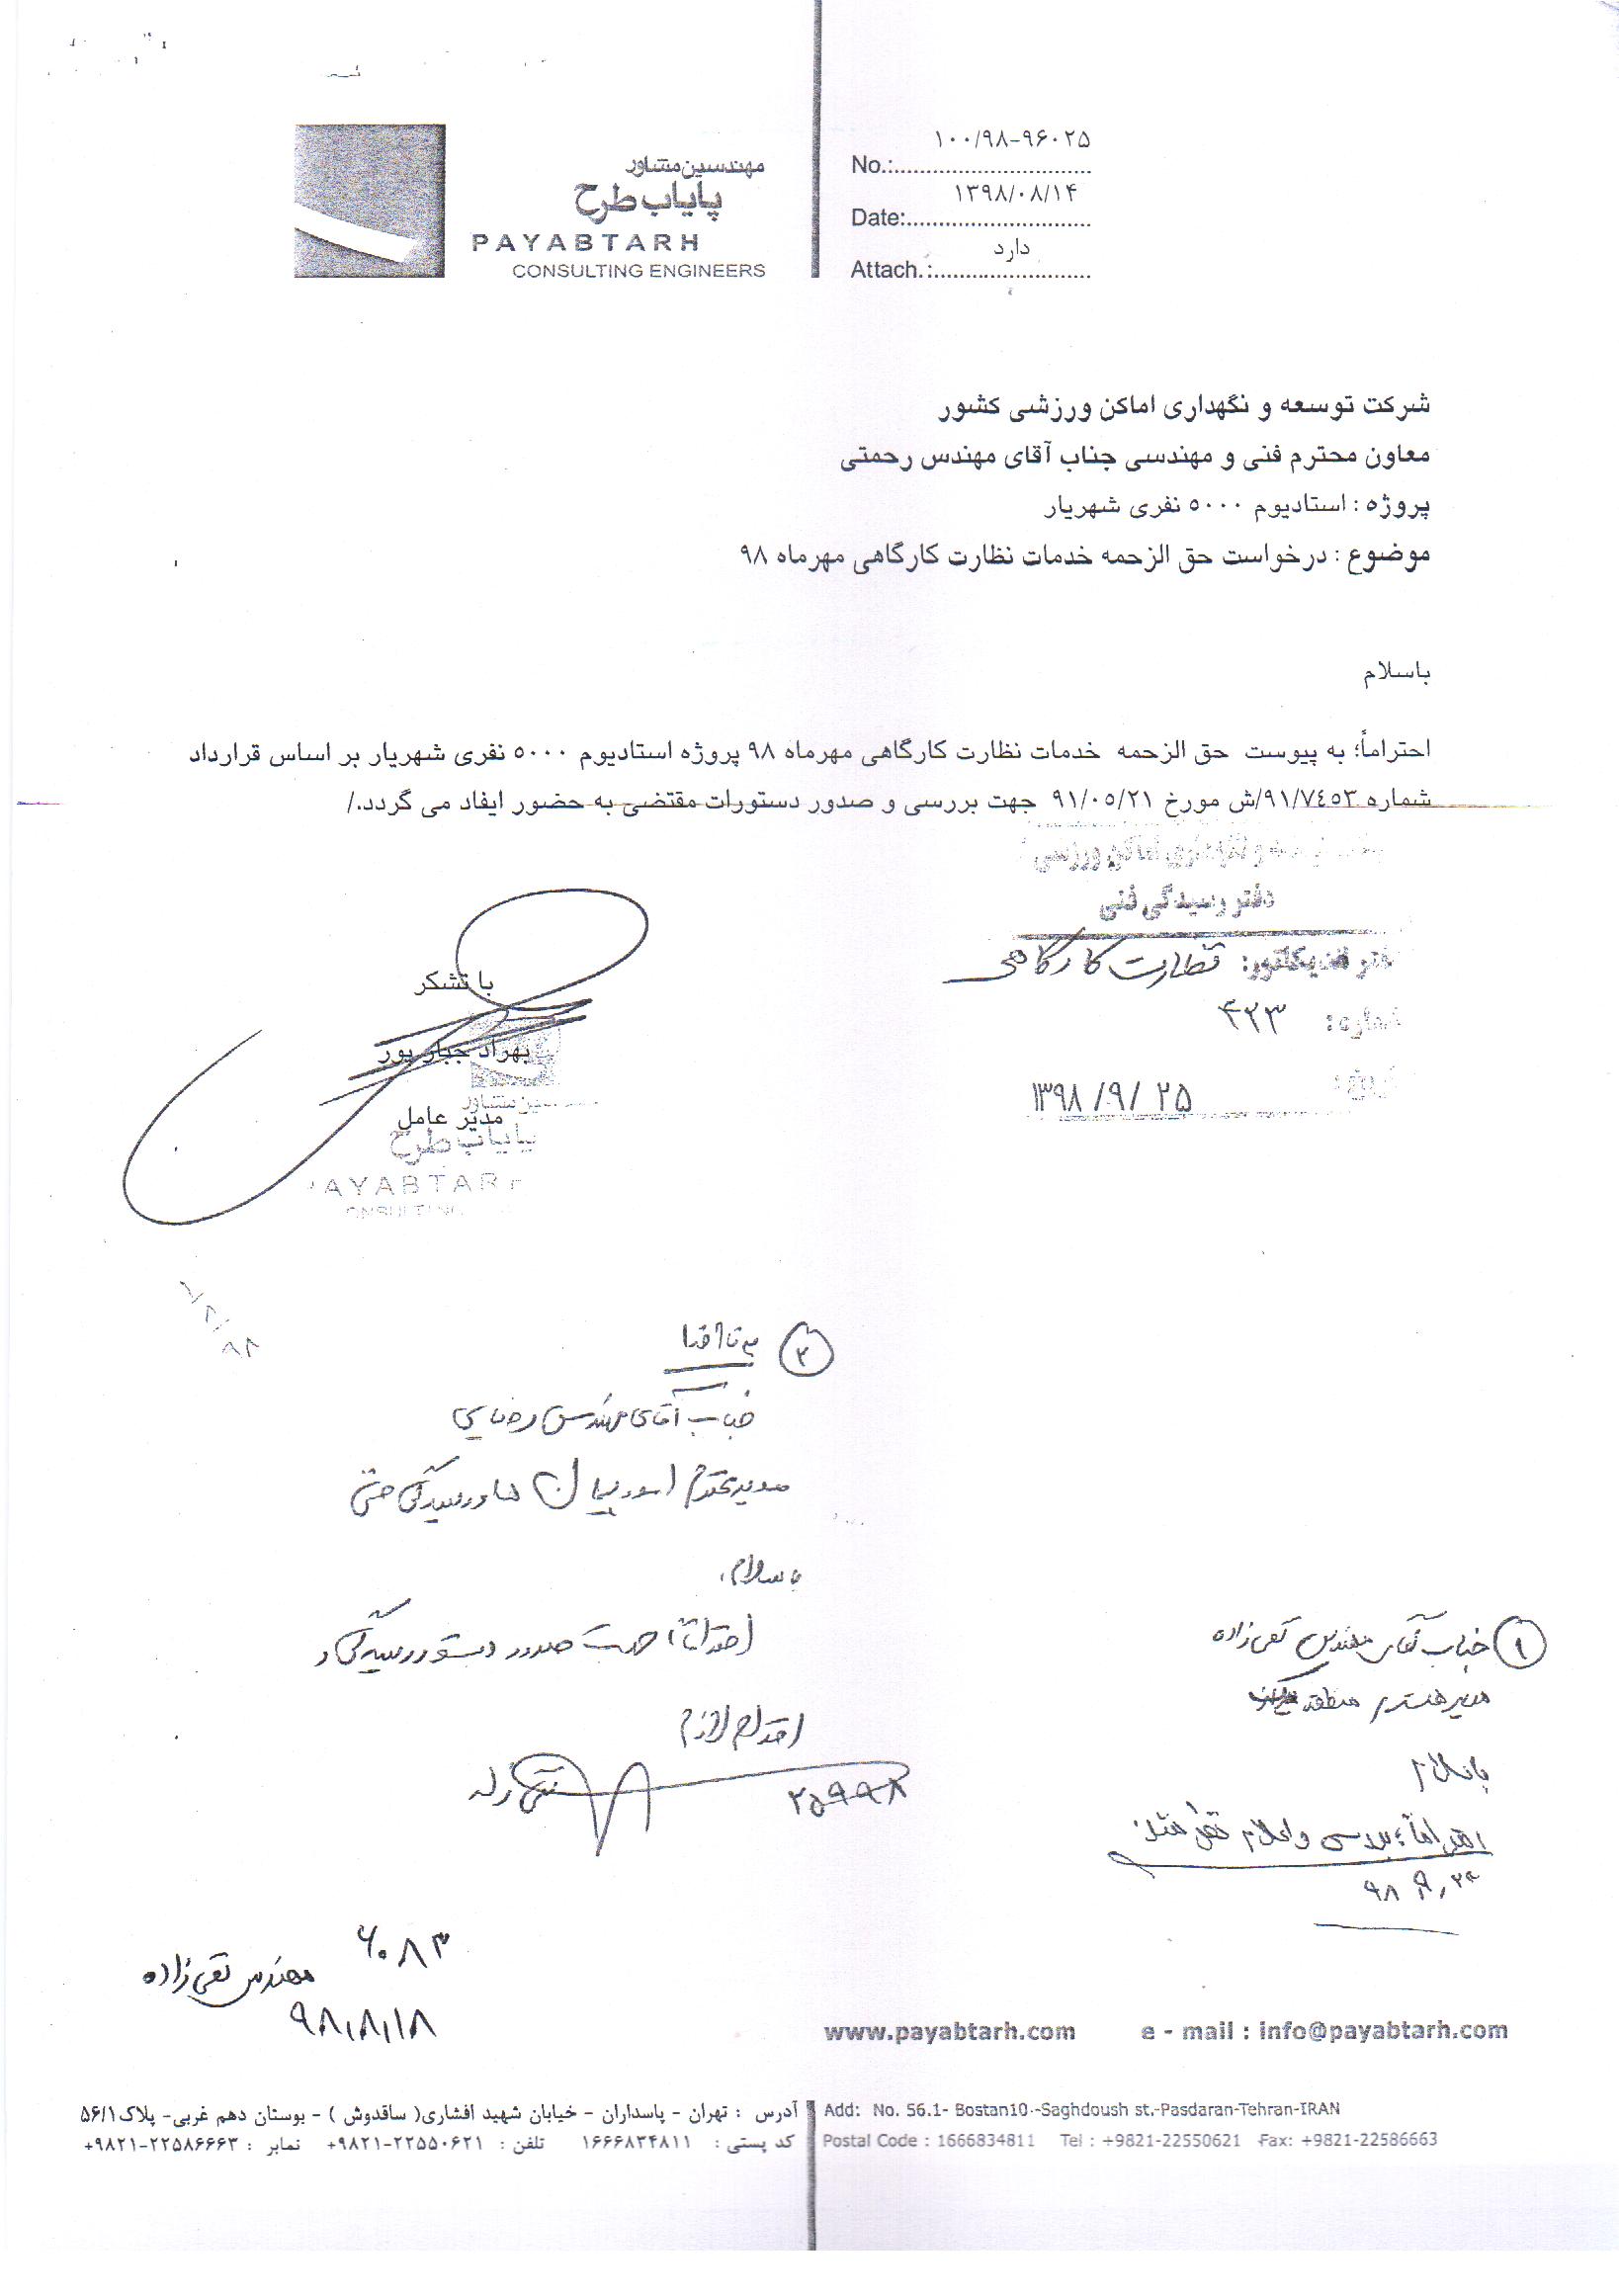 مهندسین مشاور
پایاب طرح
PAYABTARH
CONSULTING ENGINEERS
۱۰۰/۹۸-۹۶۰۲۵
No.:
۱۳۹۸/۰۸/۱۴
Date:
دارد
Attach.:
شرکت توسعه و نگهداری اماکن ورزشی کشور
معاون محترم فنی و مهندسی جناب آقای مهندس رحمتی
پروژه : استادیوم ۵۰۰۰ نفری شهریار
موضوع : درخواست حق الزحمه خدمات نظارت کارگاهی مهرماه ۹۸
باسلام
احتراماً؛ به پیوست حق الزحمه خدمات نظارت کارگاهی مهرماه ۹۸ پروژه استادیوم ۵۰۰۰ نفری شهریار بر اساس قرارداد
شماره ۹۱/۷٤٥۳/ش مورخ ۹۱/۰٥/۲۱ جهت بررسی و صدور دستورات مقتضی به حضور ایفاد می گردد./
نگهداری اماکن ورزشی
دفتر رسیدگی فنی
نظارت کارگاهی
شماره: ۴۲۳
۱۳۹۸/۹/۲۵
با تشکر
بهراد جبار پور
مدیر عامل
پایاب طرح
PAYABTARH
CONSULTING
۲
جناب آقای مهندس رضایی
مدیر محترم امور پیمان ها و رسیدگی فنی
با سلام،
احتراماً جهت صدور دستور رسیدگی و
اقدام لازم
تقی زاده
۲۵ ۹ ۹۸
۱ جناب آقای مهندس تقی زاده
مدیر محترم منطقه
باسلام
احتراماً؛ بررسی و اعلام نظر
۹۸ ۹
۶۰۸۳
مهندس تقی زاده
۹۸,۸,۱۸
www.payabtarh.com e - mail : info@payabtarh.com
آدرس : تهران - پاسداران - خیابان شهید افشاری( ساقدوش ) - بوستان دهم غربی- پلاک۵۶/۱
کد پستی : ۱۶۶۶۸۳۴۸۱۱ تلفن : ۲۲۵۵۰۶۲۱-۹۸۲۱+ نمابر : ۲۲۵۸۶۶۶۳-۹۸۲۱+
Add: No. 56.1- Bostan10.-Saghdoush st.-Pasdaran-Tehran-IRAN
Postal Code : 1666834811 Tel : +9821-22550621 Fax: +9821-22586663